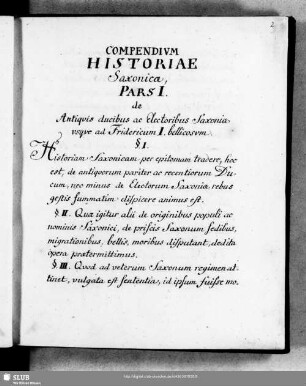 2
COMPENDIVM
HISTORIAE
Saxonicæ,
PARS I.
de
Antiqvis ducibus ac Electoribus Saxoniæ
vsqve ad Fridericum I. bellicosvm.
§ I.
Historiam Saxonicam per epitomam tradere, hoc
est, de antiqvorum pariter ac recentiorum Du-
cum, nec minus de Electorum Saxoniæ rebus
gestis summatim dispicere animus est.
§ II. Quæ igitur alii de originibus populi ac
nominis Saxonici, de priscis Saxonum sedibus,
migrationibus, bellis, moribus disputant, dedita
opera prætermittimus.
§ III. Qvod ad veterum Saxonum regimen at-
tinet, vulgata est sententia, id ipsum fuisse mo-
SLUB
Wir führen Wissen.